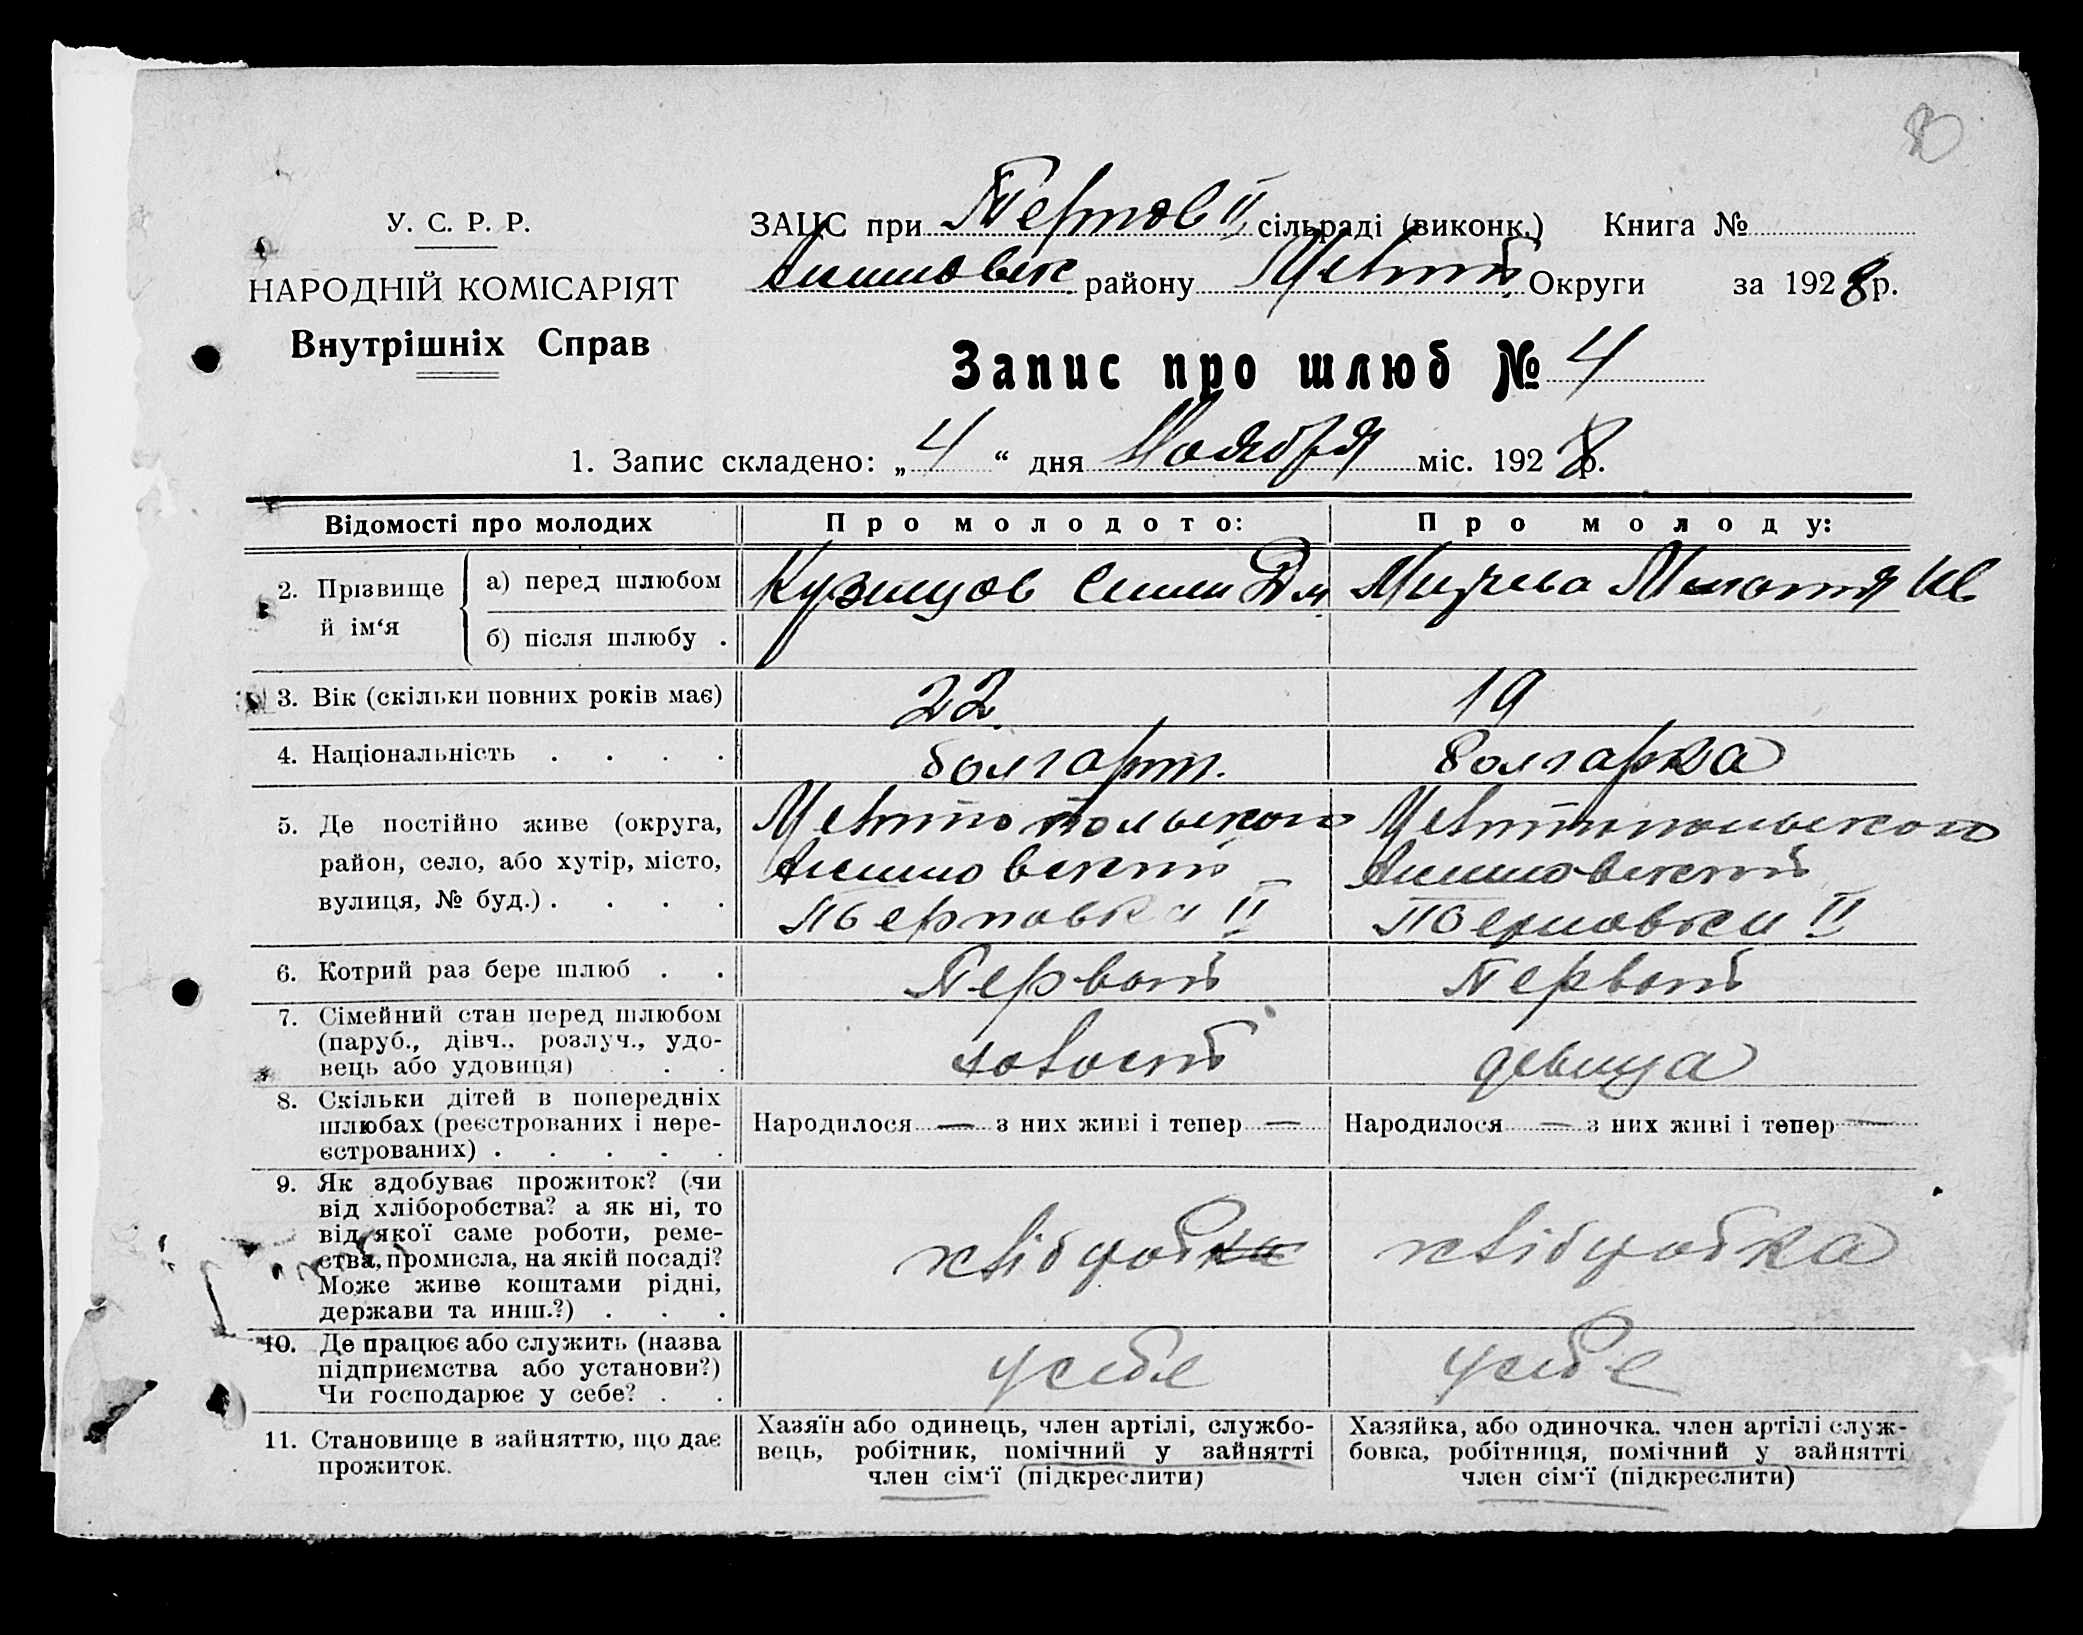 У. С. Р. Р.
НАРОДНІЙ КОМІСАРІЯТ
Внутрішніх Справ
ЗАЦС при сільраді (виконк.) Книга №
району Округи за 1928 р.
Запис про шлюб № 4
1. Запис складено: „4“ дня Ноября міс. 1928 р.
Відомості про молодих
Про молодого:
Про молоду:
2. Прізвище й ім‘я
а) перед шлюбом
б) після шлюбу .
Кузнецов
3. Вік (скільки повних років має)
22
19
4. Національність . . . .
болгарин.
болгарка
5. Де постійно живе (округа,
район, село, або хутір, місто,
вулиця, № буд.) . . . .
Мелитопольского
II
Мелитопольского
II
6. Котрий раз бере шлюб . .
Первый
Первый
7. Сімейний стан перед шлюбом
(паруб., дівч., розлуч., удо-
вець або удовиця) . .
холостой
девица
8. Скільки дітей в попередніх
шлюбах (реєстрованих і нере-
єстрованих) . . . . .
Народилося — з них живі і тепер —
Народилося — з них живі і тепер —
9. Як здобуває прожиток? (чи
від хліборобства? а як ні, то
від якої саме роботи, реме-
ства, промисла, на якій посаді?
Може живе коштами рідні,
держави та инш.?) . . .
10. Де працює або служить (назва
підприємства або установи?)
Чи господарює у себе? . .
у себе
у себе
11. Становище в зайняттю, що дає
прожиток.
Хазяїн або одинець, член артілі, службо-
вець, робітник, помічний у зайнятті
член сім‘ї (підкреслити)
Хазяйка, або одиночка, член артілі служ-
бовка, робітниця, помічний у зайнятті
член сім‘ї (підкреслити)